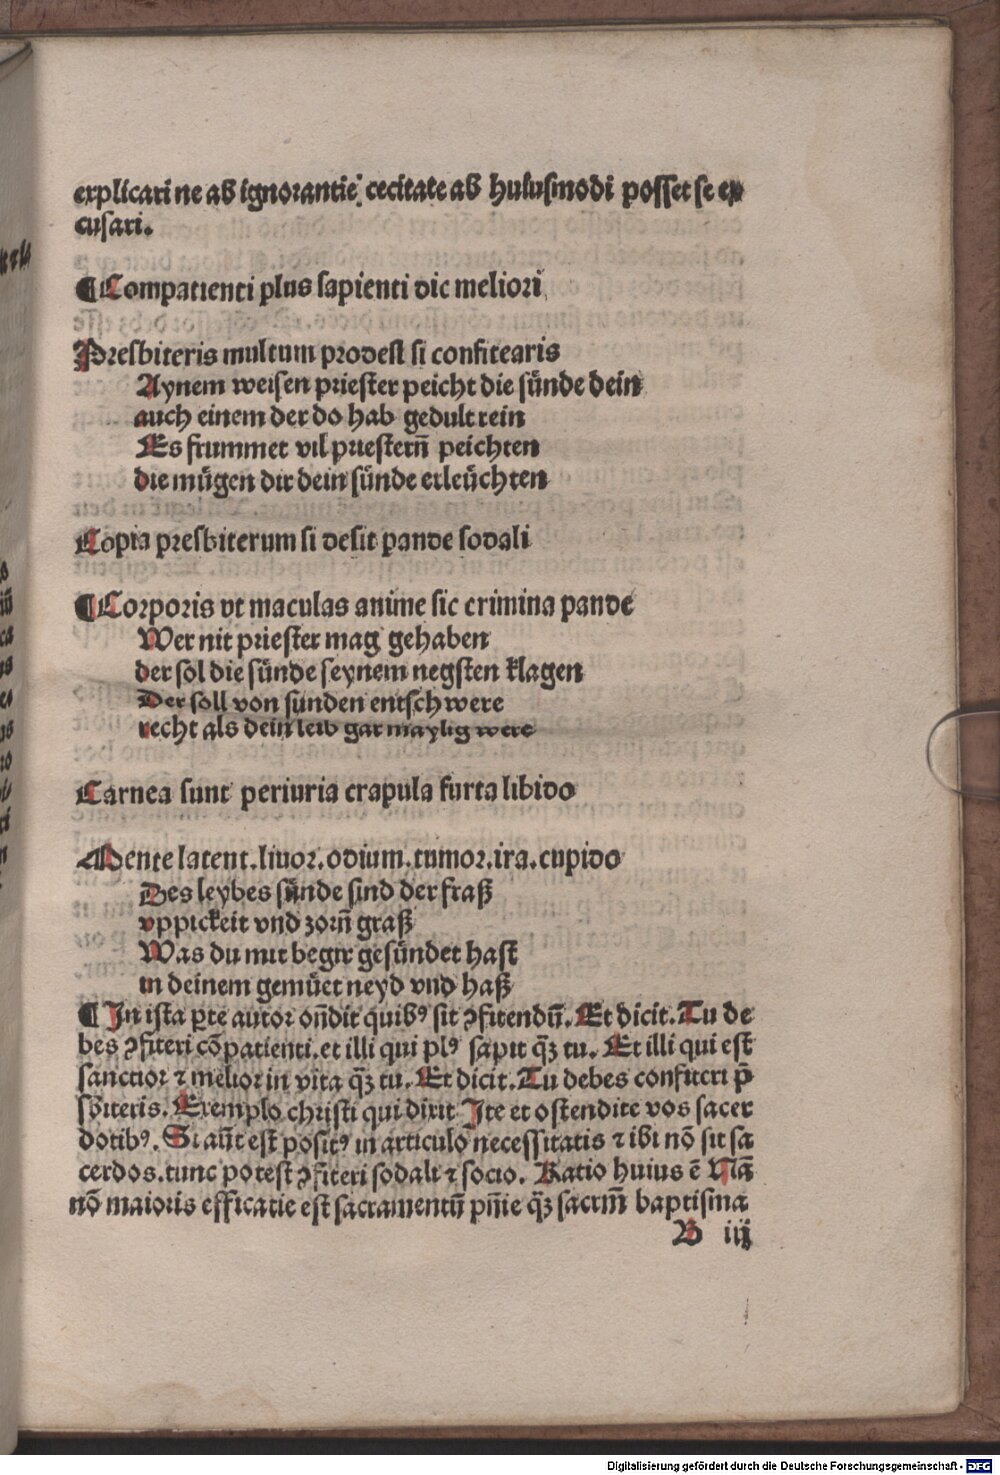 explicari ne ab ignorantie cecitate ab huiusmodi posset se ex
cusari.
¶ Compatienti plus sapienti dic meliori
Presbiteris multum prodest si confitearis
Aynem weisen priester peicht die sünde dein
auch einem der do hab gedult rein
Es frummet vil priestern̄ peichten
die mügen dir dein sünde erleüchten
Copia presbiterum si desit pande sodali
¶ Corporis vt maculas anime sic crimina pande
Wer nit priester mag gehaben
der sol die sünde seynem negsten klagen
Der soll von sunden entschwere
recht als dein leib gar maylig were
Carnea sunt periuria crapula furta libido
Mente latent. liuor. odium. tumor. ira. cupido
Des leybes sünde sind der fraß
vppickeit vnd zorn̄ graß
Was du mit begir gesündet hast
in deinem gemüet neyd vnd haß
¶ In ista ꝑte autor on̄dit quibꝰ sit ꝯfitendū. Et dicit. Tu de
bes ꝯfiteri cōpatienti. et illi qui plꝰ sapit q̄ꝫ tu. Et illi qui est
sanctior ⁊ melior in vita q̄ꝫ tu. Et dicit. Tu debes confiteri p̄
sbiteris. Exemplo christi qui dixit Ite et ostendite vos sacer
dotibꝰ. Si aūt est positꝰ in articulo necessitatis ⁊ ibi nō sit sa
cerdos. tunc potest ꝯfiteri sodali ⁊ socio. Ratio huius ē Nā
nō maioris efficatie est sacramentū pn̄ie q̄ꝫ sacrm̄ baptisma
B iij
Digitalisierung gefördert durch die Deutsche Forschungsgemeinschaft - DFG